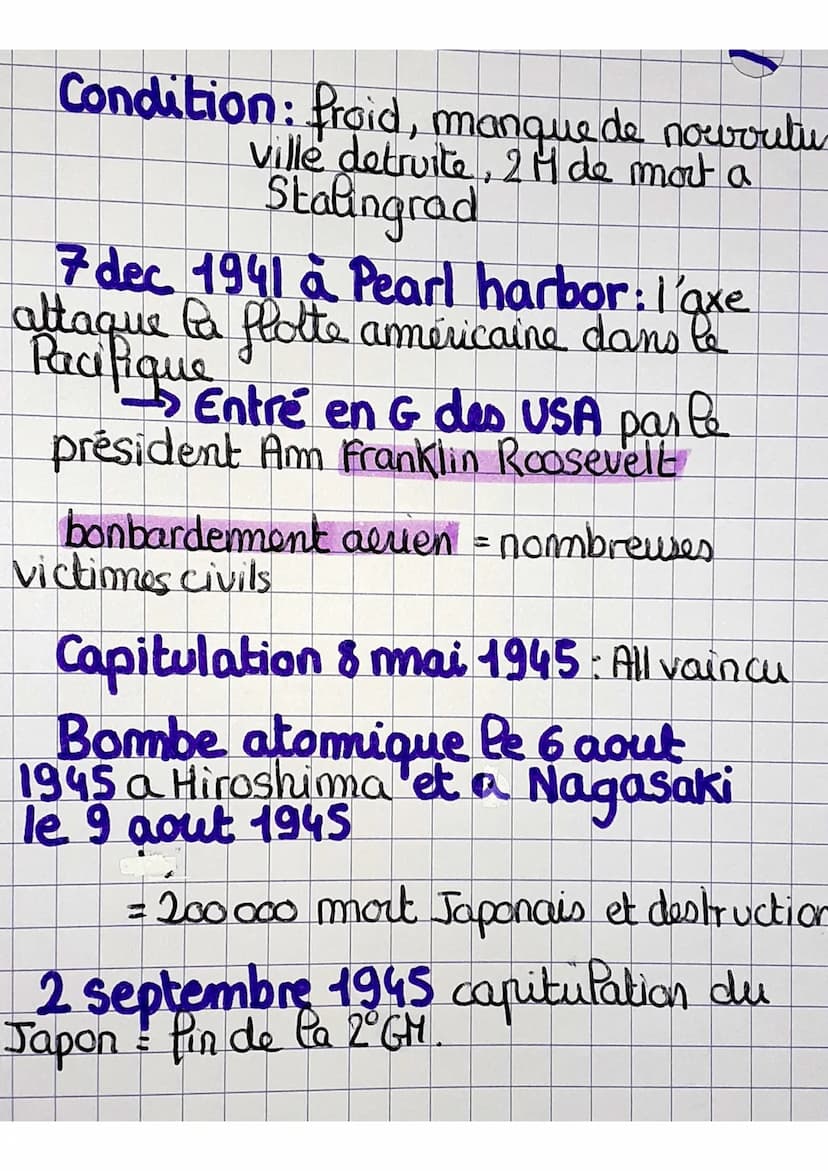 Condition: froid, manque de nourritu
ville detruite, 2 M de mort a
Stalingrad
7 dec 1941 à Pearl harbor: l'axe
attaque la flotte américaine dans le
Pacifique
→ Entré en G des USA par le
président Am Franklin Roosevelt
bonbardement aerien = nombreuses
victimes civils
Capitulation 8 mai 1945 : All vaincu
Bombe atomique le 6 aout
1945 a Hiroshima et a Nagasaki
le 9 aout 1945
= 200 000 mort Japonais et destruction
2 septembre 1945 capitulation du
Japon = fin de la 2°GM.